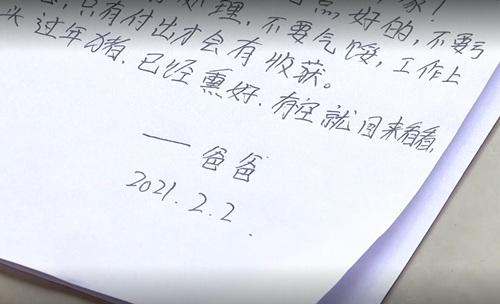 家!
点好的,不要亏
处理,不要气馁,工作上
,只有付出才会有收获。
头过年猪.已经熏好.有空就回来看看.
—爸爸
2021.2.2.